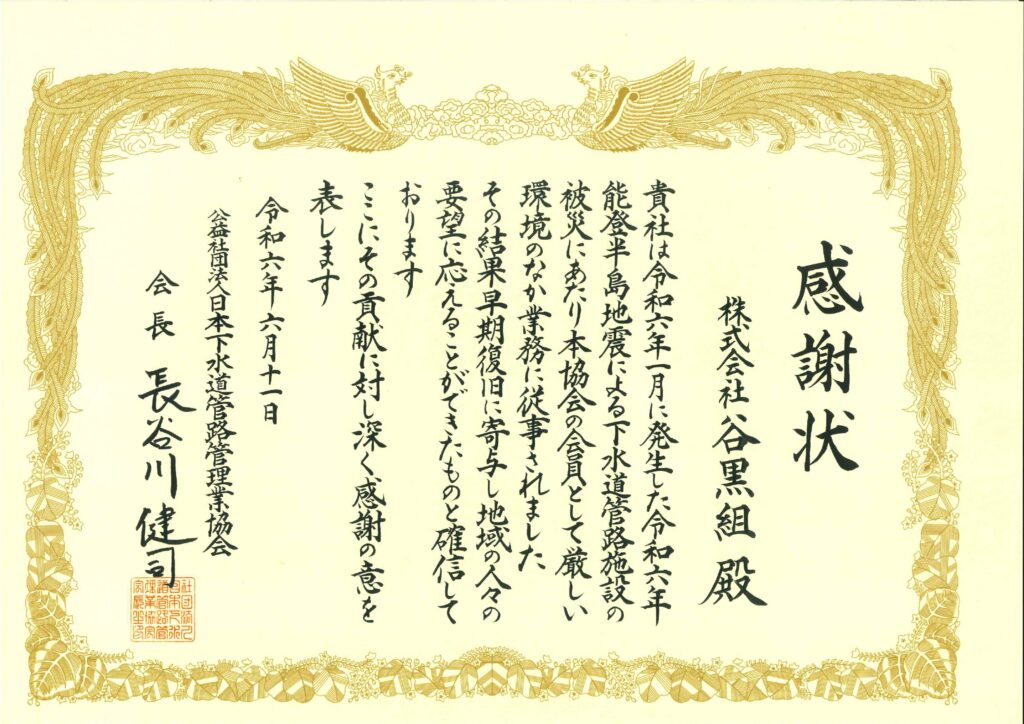 感謝状
株式会社谷黒組 殿
貴社は令和六年一月に発生した令和六年
能登半島地震による下水道管路施設の
被災にあたり本協会の会員として厳しい
環境のなか業務に従事されました
その結果早期復旧に寄与し地域の人々の
要望に応えることができたものと確信して
おります
ここにその貢献に対し深く感謝の意を
表します
令和六年六月十一日
公益社団法人日本下水道管路管理業協会
会長 長谷川健司